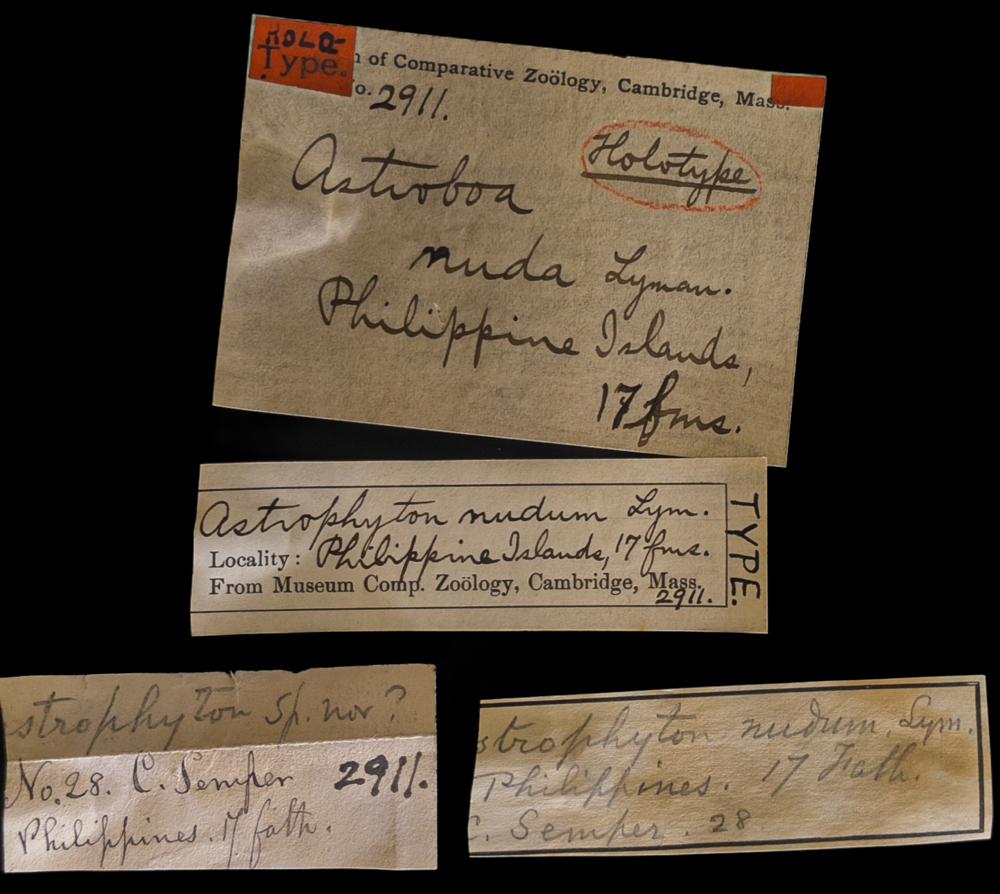 HOLO-
Type.
n of Comparative Zoölogy, Cambridge, Mass.
o. 2911.
Holotype
Astroboa
nuda Lyman.
Philippine Islands,
17 fms.
Astrophyton nudum Lym.
Locality: Philippine Islands, 17 fms.
From Museum Comp. Zoölogy, Cambridge, Mass.
2911.
TYPE.
strophyton Sp. nov?
No. 28. C. Semper 2911.
Philippines. 17 fath.
strophyton nudum, Lym.
Philippines. 17 Fath.
C. Semper. 28